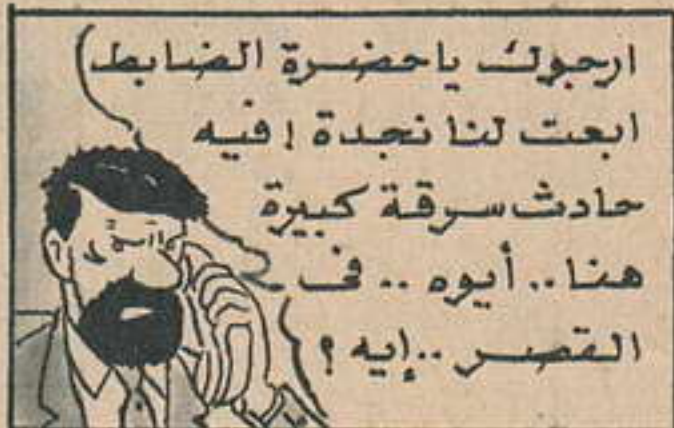 ارجوك ياحضرة الضابط
ابعت لنا نجدة ! فيه
حادث سرقة كبيرة
هنا .. أيوه .. فى
القصر .. إيه ؟